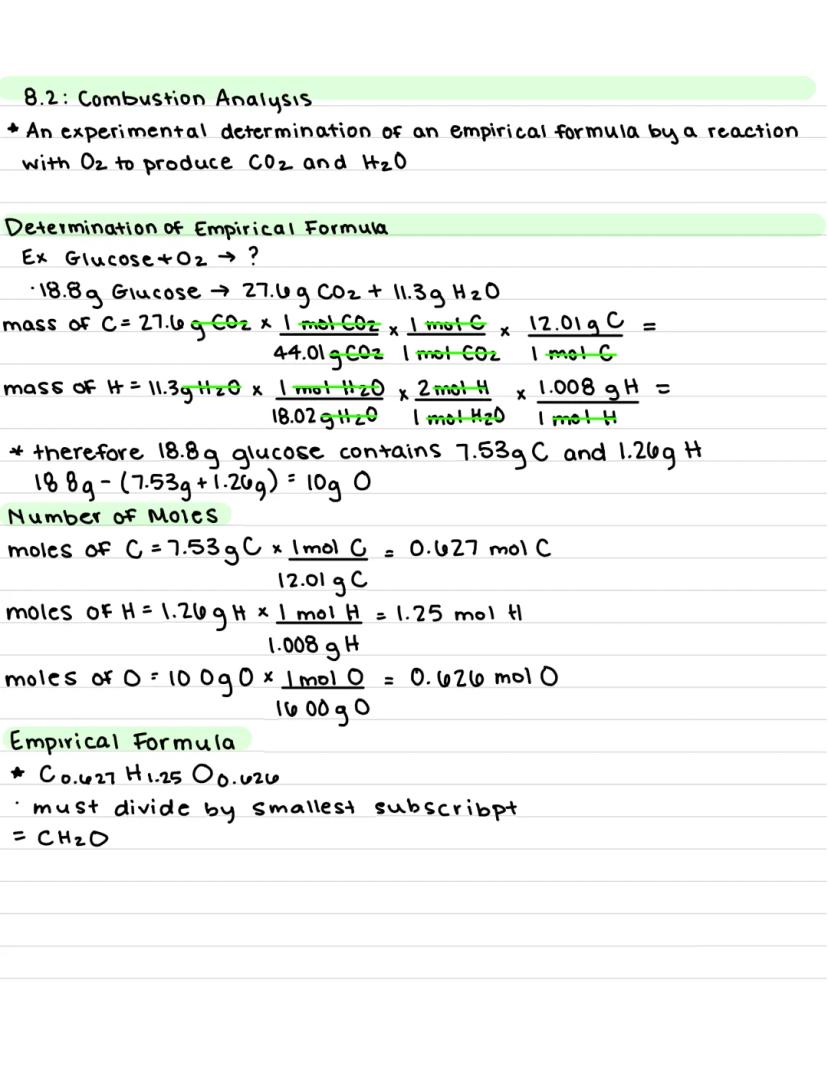 8.2: Combustion Analysis
* An experimental determination of an empirical formula by a reaction
with O₂ to produce CO₂ and H₂O
Determination of Empirical Formula
Ex Glucose + O₂ → ?
· 18.8g Glucose → 27.6g CO₂ + 11.3g H₂O
mass of C = 27.6 g CO₂ × 1 mol CO₂ × 1 mol C × 12.01 g C =
44.01 g CO₂ 1 mol CO₂ 1 mol C
mass of H = 11.3g H₂O × 1 mol H₂O × 2 mol H × 1.008 g H =
18.02 g H₂O 1 mol H₂O 1 mol H
* therefore 18.8g glucose contains 7.53g C and 1.26g H
18 8g - (7.53g + 1.26g) = 10g O
Number of Moles
moles of C = 7.53 g C × 1 mol C = 0.627 mol C
12.01 g C
moles of H = 1.26 g H × 1 mol H = 1.25 mol H
1.008 g H
moles of O = 10 0g O × 1 mol O = 0.626 mol O
16 00 g O
Empirical Formula
* C0.627 H1.25 O0.626
· must divide by smallest subscribpt
= CH₂O